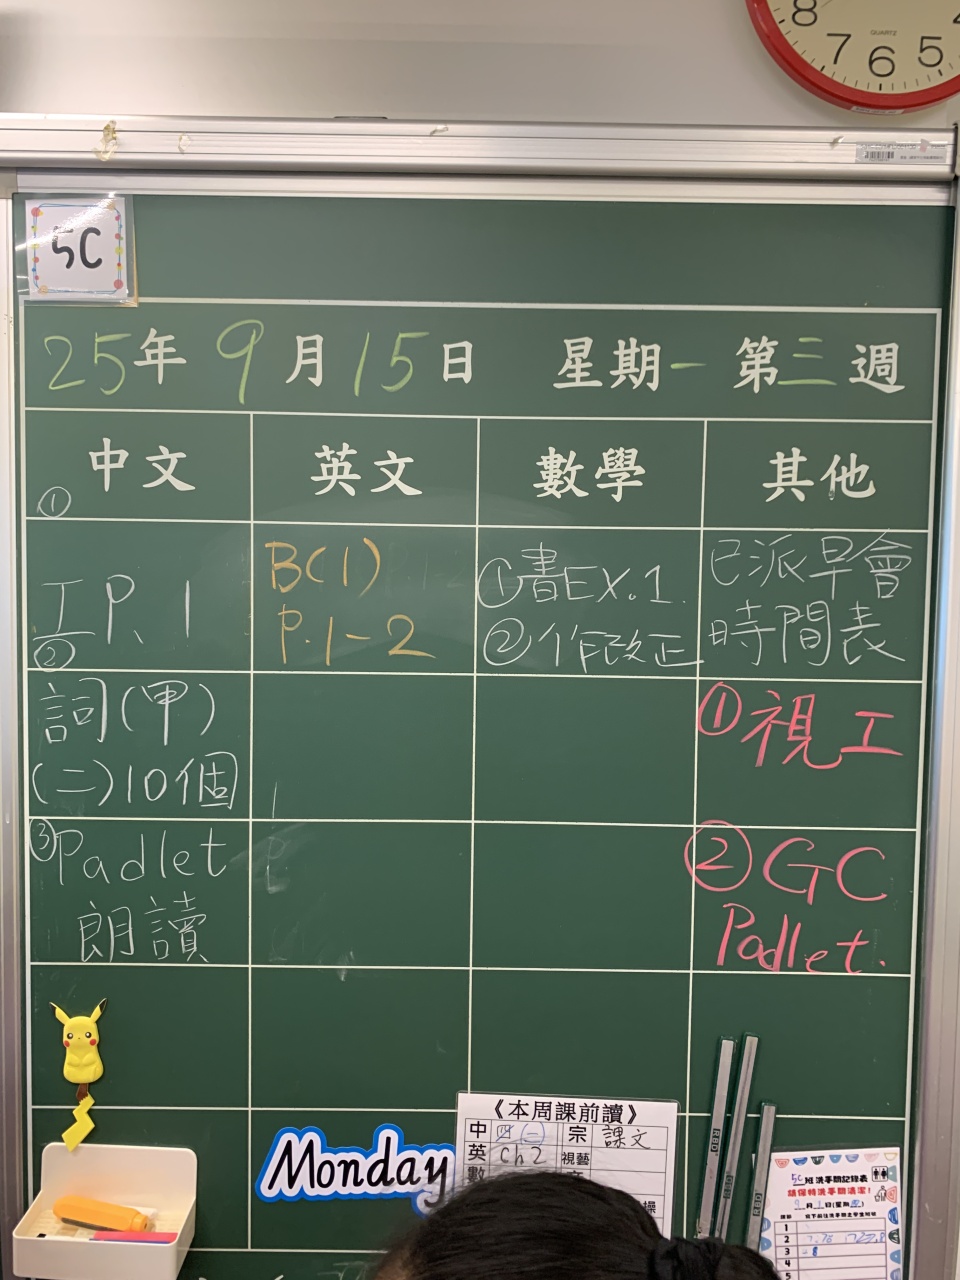 8 7 6 5
QUARTZ
5C
25年 9月 15日 星期一 第三週
中文 英文 數學 其他
①
工 P.1
②
詞(甲)
(二)10個
③Padlet
朗讀
B(1)
P.1-2
①書EX.1.
②作改正
已派早會
時間表
①視工
②GC
Padlet.
Monday
《本周課前讀》
中 四(二) 宗 課文
英 Ch2 視藝
數
5C班洗手間記錄表
請保持洗手間清潔!
9月
1
2
3
4
5